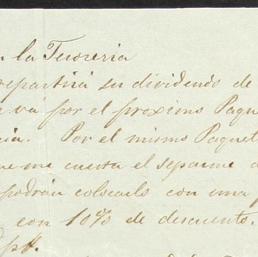 la Tesoreria
repartirá su dividendo de
va por el proximo Paque
Por el mismo Paquet
me cuesta el separme
podrán colocarlo con una
con 10% de descuento.